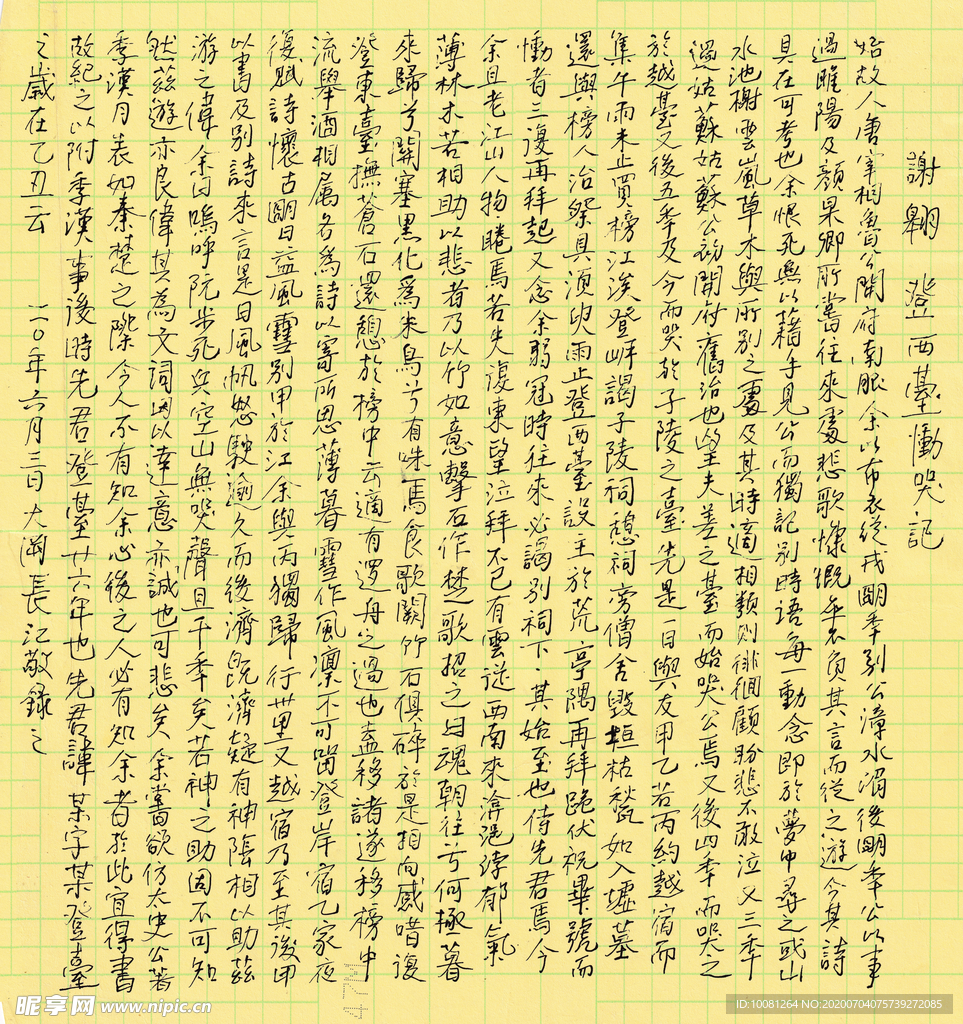 謝翱 登西臺慟哭記
始故人唐宰相魯公開府南服余以布衣從戎明年別公漳水湄後明年公以事
過睢陽及顏杲卿所嘗往來處悲歌慷慨卒不負其言而從之游今其詩
具在可考也余恨死無以藉手見公而獨記別時語每一動念即於夢中尋之或山
水池榭雲嵐草木與所別之處及其時適相類則徘徊顧盼悲不敢泣又三年
過姑蘇姑蘇公初開府舊治也望夫差之臺而始哭公焉又後四年而哭之
於越臺又後五年及今而哭於子陵之臺先是一日與友甲乙若丙約越宿而
集午雨未止買榜江涘登岸謁子陵祠憩祠旁僧舍毀垣枯甃如入墟墓
還與榜人治祭具須臾雨止登西臺設主於荒亭隅再拜跪伏祝畢號而
慟者三復再拜起又念余弱冠時往來必謁別祠下其始至也侍先君焉今
余且老江山人物睠焉若失復東望泣拜不已有雲從西南來渰浥浡郁氣
薄林木若相助以悲者乃以竹如意擊石作楚歌招之曰魂朝往兮何極暮
來歸兮關塞黑化為朱鳥兮有咮焉食歌闋竹石俱碎於是相向感唶復
登東臺撫蒼石還憩於榜中云適有邏舟之過也盍移諸遂移榜中
流舉酒相屬各為詩以寄所思薄暮雪作風凜不可留登岸宿乙家夜
復賦詩懷古明日益風雪別甲於江余與丙獨歸行卅里又越宿乃至其後甲
以書及別詩來言是日風帆怒駛逾久而後濟既濟疑有神陰相以助茲
游之偉余曰嗚呼阮步死兵空山無哭聲且千年矣若神之助固不可知
然茲遊亦良偉其為文詞因以達意亦誠也可悲矣余嘗欲仿太史公著
季漢月表如秦楚之際今人不有知余心後之人必有知余者於此宜得書
故紀之以附季漢事後時先君登臺廿六年也先君諱某字某登臺
之歲在乙丑云 一一〇年六月三日大 長江敬錄之
昵享网 www.nipic.cn
ID:10081264 NO:20200704075739272085